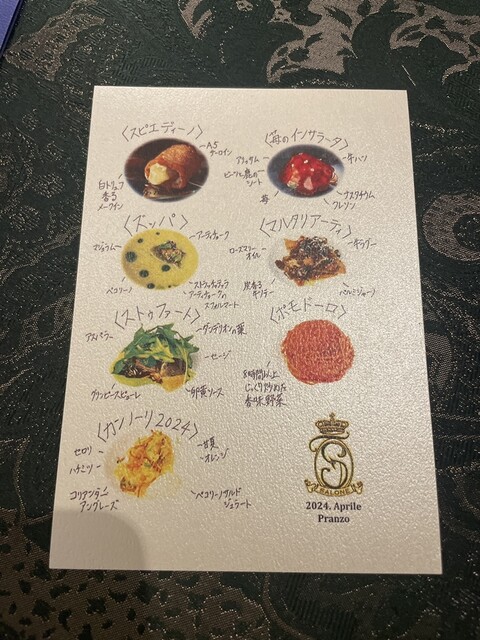 〈スピエディーノ〉
A5
サーロイン
白トリュフ
香る
メークイン
〈苺のインサラータ〉
牛ハツ
苺
ナスタチウム
クレソン
〈ズッパ〉
アーティチョーク
マジョラム
ペコリーノ
ストラッチャテッラ
アーティチョークの
スフォルマート
〈マルタリアーティ〉
ローズマリー
オイル
パルミジャーノ
〈ストゥファート〉
ダンデリオンの葉
アスパラ
セージ
グリンピースピューレ
卵黄ソース
〈ポモドーロ〉
8時間以上
じっくり炒めた
香味野菜
〈カンノーリ2024〉
セロリ
ハチミツ
甘夏
オレンジ
コリアンダー
アングレーズ
ペコリーノサルド
ジェラート
S
SALONE
2024. Aprile
Pranzo